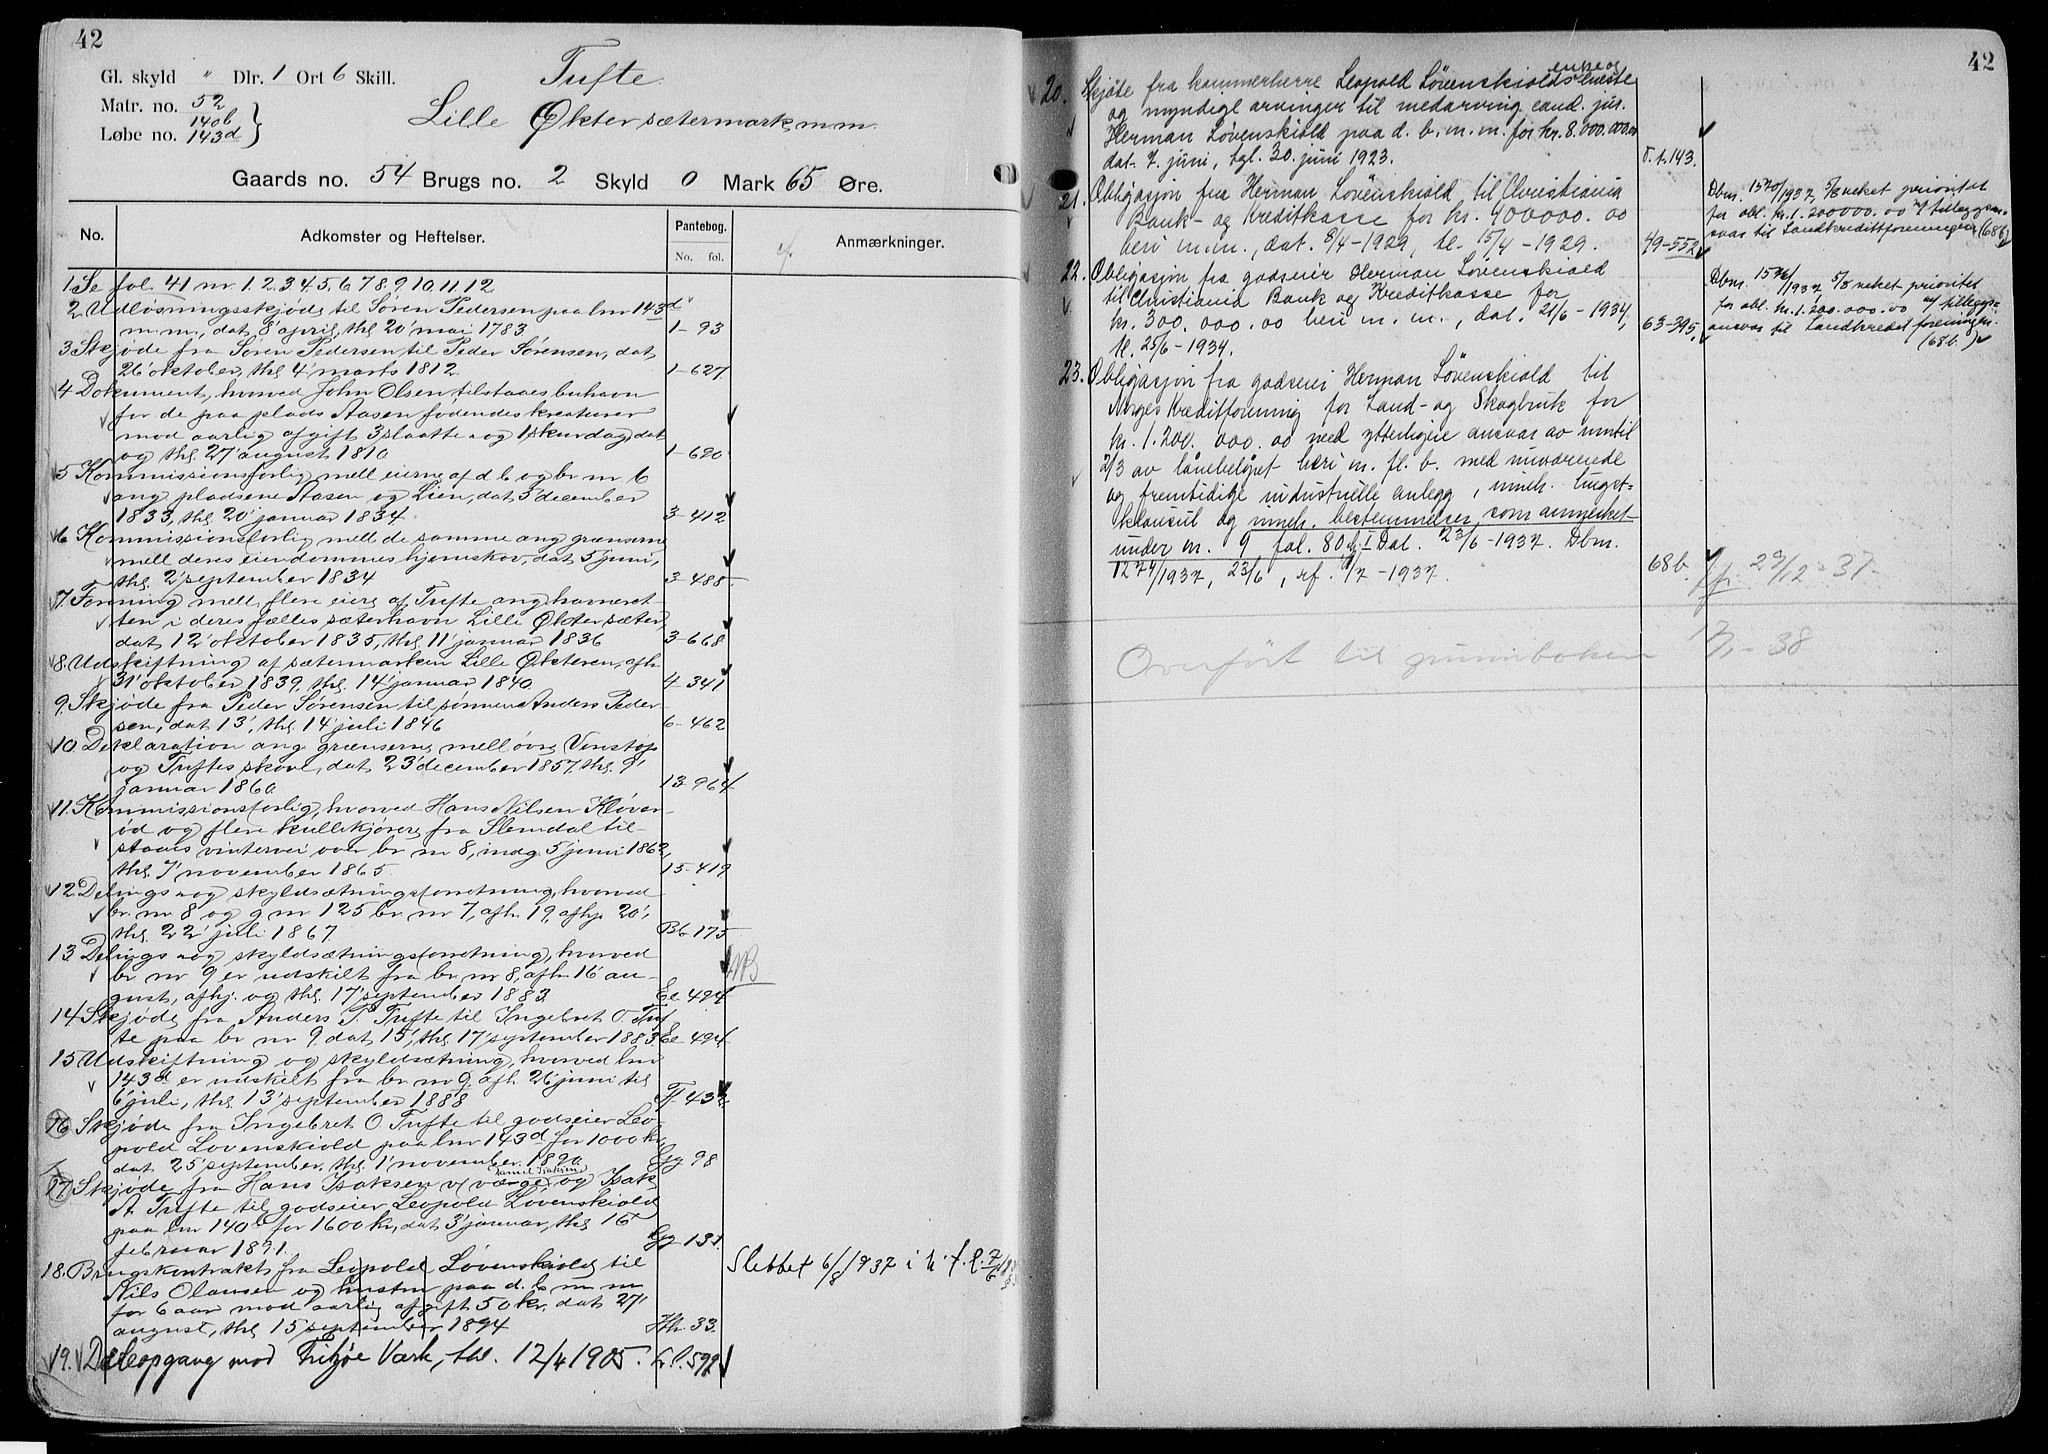 42
Gl. skyld " Dlr. 1 Ort 6 Skill.
Matr. no. 52
Løbe no. 140b 143d
Tufte
Lille Økter sætermark m m
Gaards no. 54 Brugs no. 2 Skyld 0 Mark 65 Øre.
No. Adkomster og Heftelser. Pantebog. No. fol. Anmærkninger.
1. Se fol. 41 nr 1. 2. 3. 4. 5. 6. 7. 8. 9. 10. 11. 12
2 Udløsningsskjøde til Søren Pedersen paa lnr 143d
m. m., dat 8' april, thl 20' mai 1783 1-93
3. Skjøde fra Søren Pedersen til Peder Sørensen, dat
26' oktober, thl 4' marts 1812. 1-627
4 Dokument, hvorved John Olsen tilstaaes buhavn
for de paa plads Aasen fødendes kreaturer
mod aarlig afgift 3 slaatte og 1 skurdag, dat
og thl 27' august 1810. 1-690
5 Kommissionsforlig mell eierne af d b og br nr 6
ang pladsene Aasen og Lien, dat 5' december
1833, thl 20' januar 1834. 3-412
6 Kommissionsforlig mell de samme ang grænserne
mell deres eiendommes hjemskov, dat 5' juni,
thl 2' september 1834 3-488
7. Forening mell flere eiere af Tufte ang havneret-
ten i deres fælles sæterhavn Lille Økter sæter,
dat 12' oktober 1835, thl 11' januar 1836 3-668
8. Udskiftning af sætermarken Lille Økteren, afh
31' oktober 1839, thl. 14' januar 1840. 4-341
9. Skjøde fra Peder Sørensen til sønnen Anders Peder-
sen, dat 13', thl 14' juli 1846 6-462
10. Deklaration ang grænserne mell øvre Venstøp
og Tuftes skove, dat 23' december 1857, thl. 9'
januar 1860. 13-964
11. Kommissionsforlig, hvorved Hans Nilsen Kløver-
ød og flere kullekjørere fra Slemdal til-
staaes vintervei over br nr 8, indg 5' juni 1862,
thl 7' november 1865. 15-419
12 Delings- og skyldsætningsforretning, hvorved
br. nr 8 og g nr 125 br nr 7, afh. 19', afhj. 20',
thl. 22' juli 1867. Bb 175
13 Delings- og skyldsætningsforretning, hvorved
br nr 9 er udskilt fra br nr 8, afh 16' au- NB
gust, afhj. og thl 17' september 1883. Ee 494
14 Skjøde fra Anders P. Tufte til Ingebret O. Tuf-
te paa br nr 9, dat 15', thl 17' september 1883. Ee 494
15 Udskiftning og skyldsætning, hvorved lnr
143d er udskilt fra br nr 9, afh 26' juni til
6' juli, thl 13' september 1888 Ff 432
16 Skjøde fra Ingebret O. Tufte til godseier Leo-
pold Løvenskiold paa lnr 143d for 1000 kr,
dat 25' september, thl 1' november 1890. Gg 98
17 Skjøde fra Hans Isaksen v/ værge og Isak
A Tufte til godseier Leopold Løvenskiold
paa lnr 140b for 1600 kr, dat 3' januar, thl 16'
februar 1891. Gg 131
18. Brugskontrakt fra Leopold Løvenskiold til Slettet 6/8 1937 i h. t. l.
Nils Olausen og hustru paa d. b m m
for 6 aar mod aarlig afgift 50 kr, dat 27'
august, thl 15' september 1894 Hh 33
19. Deleopgang mod Fritzøe Værk, thl. 12/4 1905.
42
20. Skjøde fra kammerherre Leopold Løvenskiolds enke og eneste
og myndige arvinger til medarving cand. jur.
Herman Løvenskiold paa d. b. m. m. for kr. 8.000.000.00
dat. 7. juni, tgl. 30. juni 1923. V. t. 143.
21. Obligasjon fra Herman Løvenskiold til Christiania
Bank- og Kreditkasse for kr. 400000. 00
heri m. m., dat. 8/4-1929, tl. 15/4-1929. 49-552
Dbnr. 1570/1937, 5/8 veket prioritet
for obl. kr. 1. 200000. 00 m/ tilleggsan-
svar til Landkredittforeningen (68b)
22. Obligasjon fra godseier Herman Løvenskiold
til Christiania Bank og Kreditkasse for
kr. 300. 000. 00 heri m. m., dat. 21/6-1934, 63-395.
tl. 25/6-1934.
Dbnr. 1576/1937, 5/8 veket prioritet
for obl. kr. 1. 200. 000. 00 m/ tilleggs-
ansvar til Landkreditforeningen.
(68b.)
23. Obligasjon fra godseier Herman Løvenskiold til
Norges Kreditforening for Land- og Skogbruk for
kr. 1. 200. 000. 00 med ytterligere ansvar av inntil
2/3 av lånebeløpet heri m. fl. b. med nuværende
og fremtidige industrielle anlegg, inneh.
klausul og inneh. bestemmelser som anmerket
under nr. 9, fol. 80, I Dat. 23/6-1937. Dbnr.
1274/1937, 23/6, rf. 1/7-1937. 68b.
29/12-37
Overført til grunnboken 13/1-38